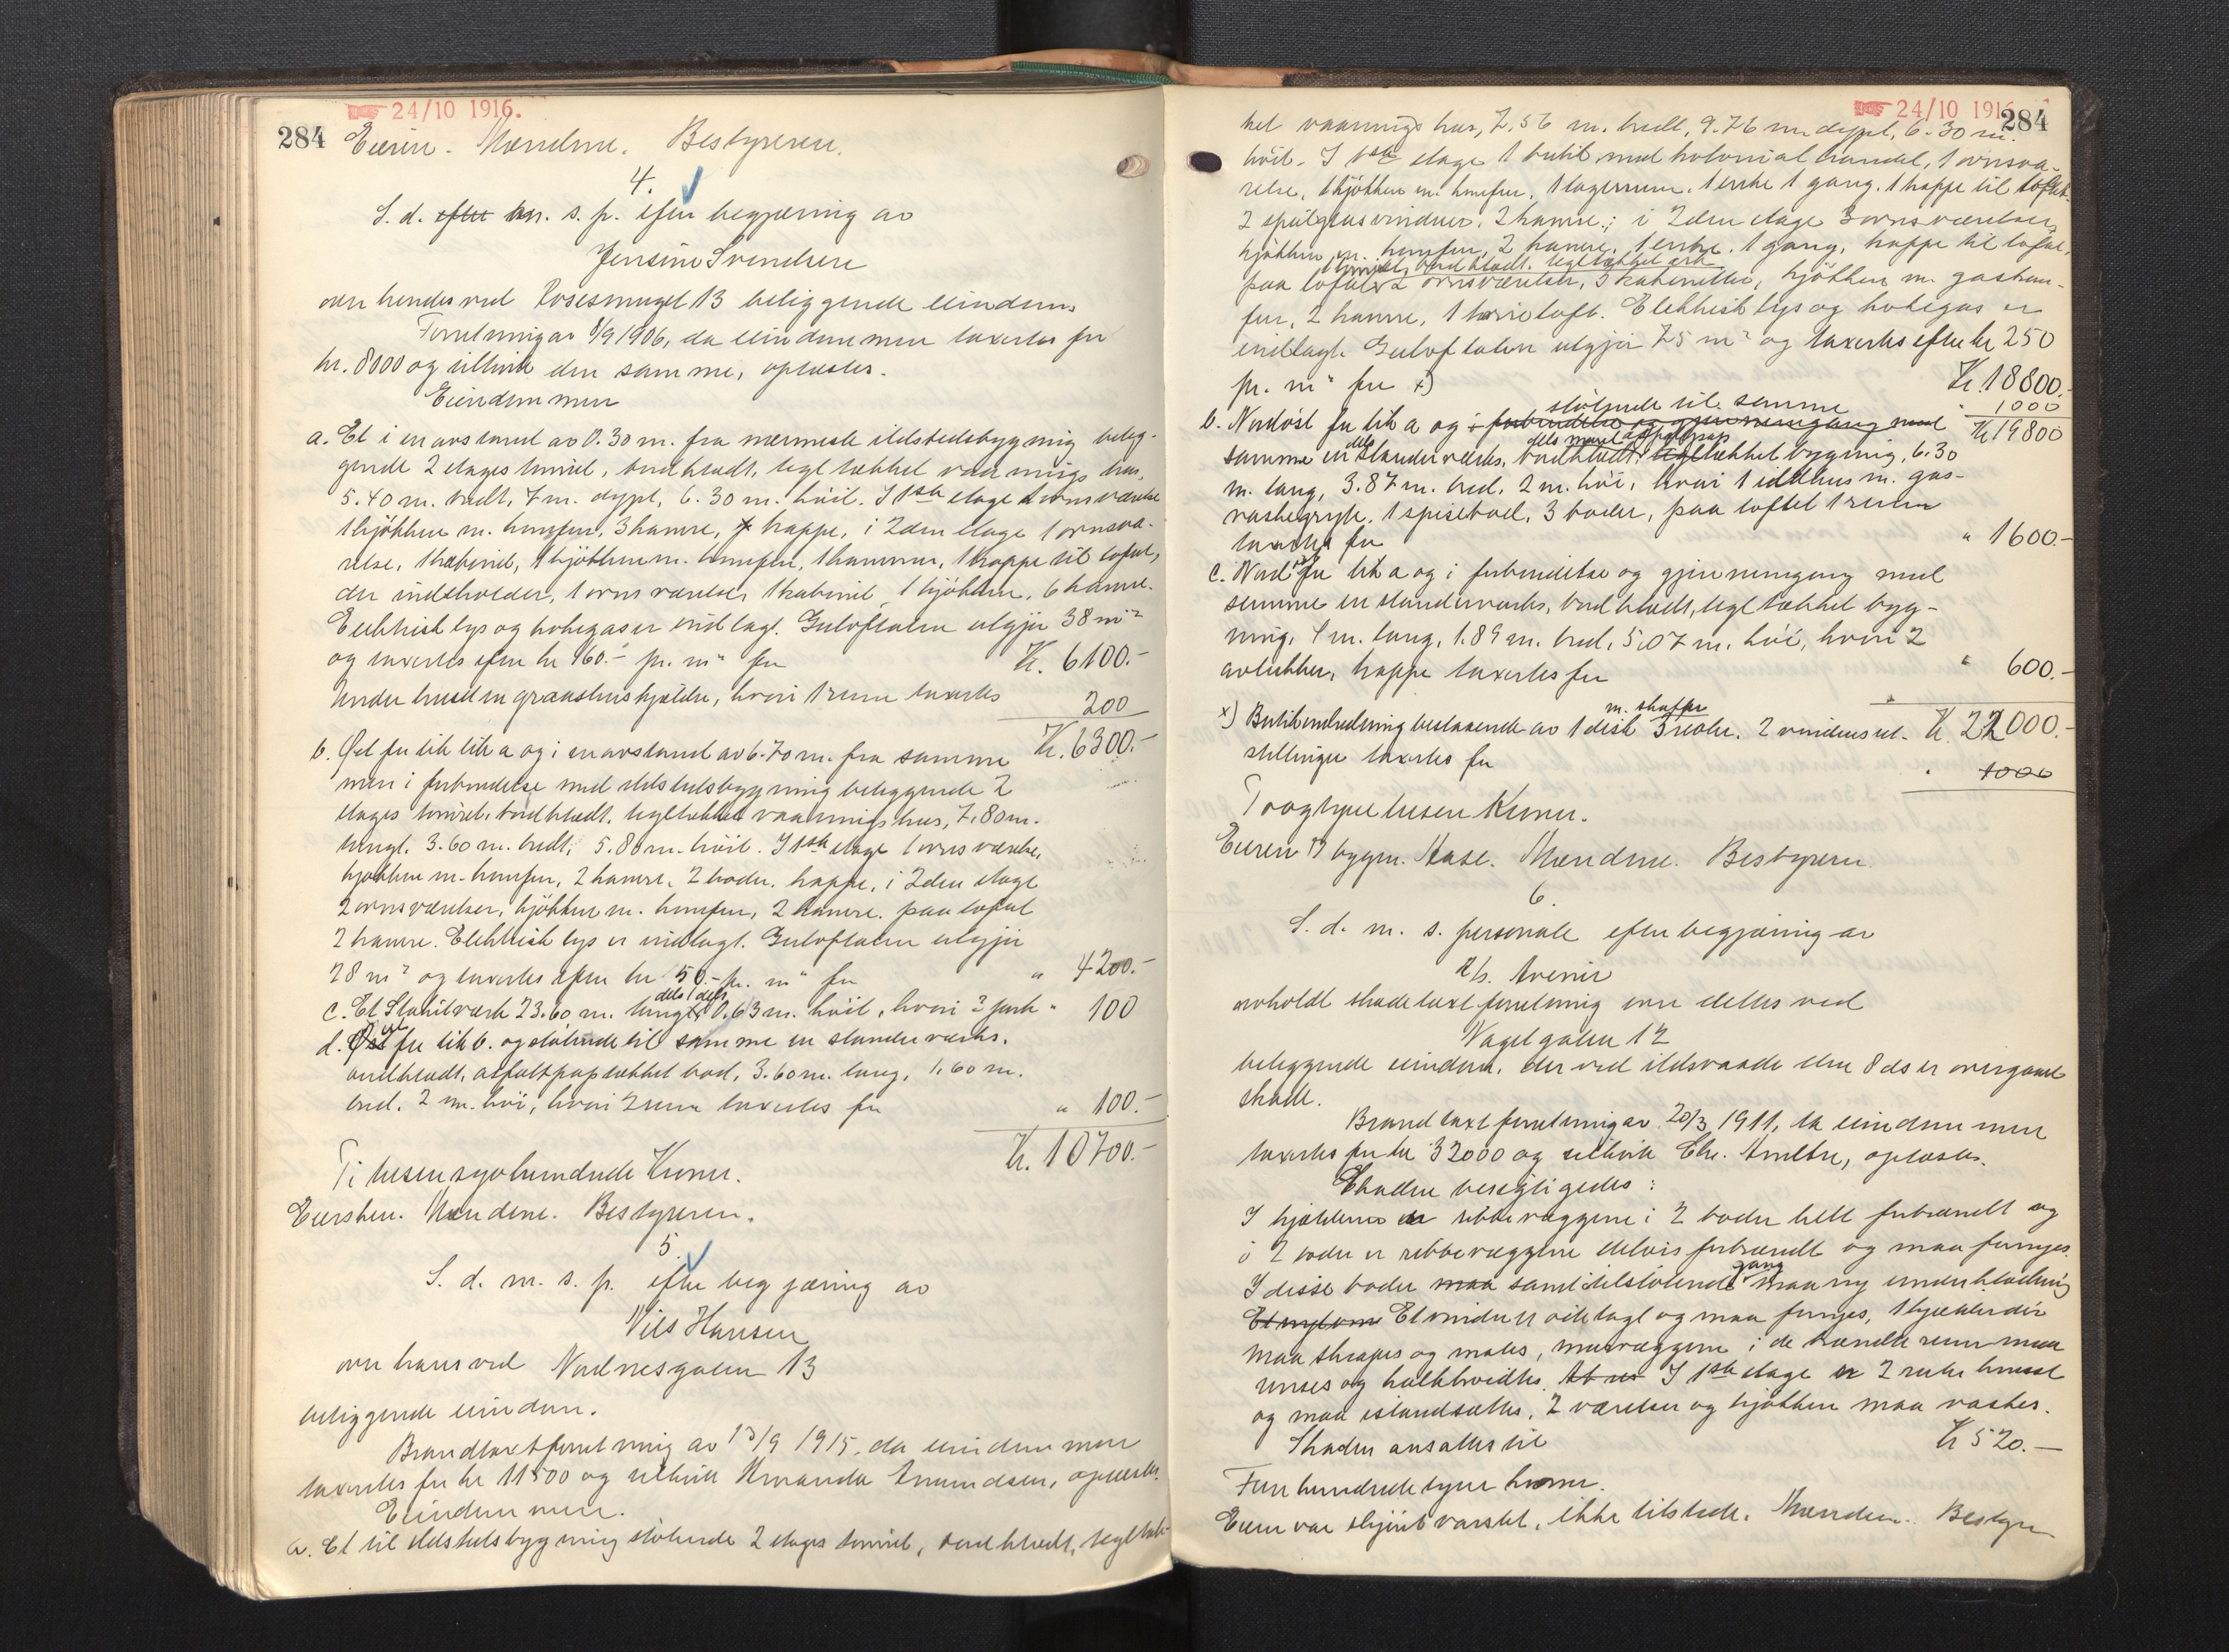 24/10 1916.
284 Eieren. Mændene. Bestyreren.
4.
S. d. m. s. p. efter begjæring av
Jensine Svendsen
over hendes ved Rosesmuget 13 beliggende eiendom.
Forretning av 8/9 1906, da eiendommen taxertes for
kr. 8000 og tilhørte den samme, oplæstes.
Eiendommen
a. Et i en avstand av 0.30 m. fra nærmeste ildstedsbygning belig-
gende 2 etages tømret, bordklædt, tegltækket vaanings hus,
5.40 m. bredt, 7 m. dypt, 6.30 m. høit. I 1ste etage 1 ovnsværelse
1 kjøkken m. komfur, 3 kamre, trappe, i 2den etage 1 ovnsvæ-
relse, 1 kabinet, 1 kjøkken m. komfur, 1 kammer, 1 trappe til loftet,
der indeholder, 1 ovnsværelse, 1 kabinet, 1 kjøkken, 6 kamre.
Elektrisk lys og kokegas er indlagt. Gulvflaten utgjør 38 m²
og taxertes efter kr 160.- pr. m² for Kr. 6100.-
Under huset en graastenskjælder, hvori 1 rum taxertes 200
Kr. 6300.-
b. Øst for lit a og i en avstand av 6.70 m. fra samme
men i forbindelse med ildstedsbygning beliggende 2
etages tømret, bordklædt, tegltækket vaaningshus, 7,80 m.
langt, 3.60 m. bredt, 5.80 m. høit. I 1ste etage 1 ovnsværelse,
kjøkken m. komfur, 2 kamre, 2 boder, trappe, i 2den etage
2 ovnsværelser, kjøkken m. komfur, 2 kamre. paa loftet
2 kamre. Elektrisk lys er indlagt. Gulvflaten utgjør
28 m² og taxertes efter kr 150.- pr. m² for " 4200.-
c. Et Stakitværk 23.60 m. langt, 0.63 m. høit, hvori 2 porte " 100
d. for lit b. og støtende til samme en standerværks.
bordklædt, asfaltpaptækket bod, 3.60 m. lang, 1,60 m.
bred, 2 m. høi, hvori 2 rum taxertes for " 100.-
Kr. 10700.-
Ti tusen syvhundrede Kroner.
Eiersken. Mændene. Bestyreren.
5.
S. d. m. s. p. efter begjæring av
Nils Hansen
over hans ved Nordnesgaten 13
beliggende eiendom.
Brandtaxtforretning av 13/9 1915, da eiendommen
taxertes for kr 11500 og tilhørte Amundsen, oplæstes.
Eiendommen.
a. Et til ildstedsbygning støtende 2 etages tømret, bordklædt, tegltæk-
24/10 1916
284
ket vaanings hus, 7.56 m. bredt, 9.76 m. dypt, 6.30 m.
høit. I 1ste etage 1 butik med kolonial handel, 1 ovnsvæ-
relse, 1 kjøkken m. komfur, 1 lagerrum, 1 entre 1 gang, 1 trappe til loftet.
2 speilglasvinduer, 2 kamre; i 2den etage 3 ovnsværelser,
kjøkken m. komfur, 2 kamre, 1 entre, 1 gang, trappe til loftet,
1 tømret, bordklædt, tegltækket ark
paa loftet 2 ovnsværelser, 3 kabinetter, kjøkken m. gaskom-
fur, 2 kamre, 1 tørreloft. Elektrisk lys og kokegas er
indlagt. Gulvflaten utgjør 75 m² og taxertes efter kr 250
pr. m² for x) Kr. 18800.-
" 1000
støtende til samme
b. Nordøst for lit a og i forbindelse og gjennemgang med Kr 19800
dels dels muret asfaltpap
samme en standerværks, bordklædt, tegltækket bygning, 6.30
m. lang, 3.87 m. bred, 2 m. høi, hvori 1 ildhus m. gas-
vaskegryte, 1 spisebod, 3 boder, paa loftet 1 rum
taxertes for " 1600.-
c. Nord for lit a og i forbindelse og gjennemgang med
samme en standerværks, bordklædt, tegltækket byg-
ning, m. lang, 1.89 m. bred, 5,07 m. høi, hvori 2
avlukker, trappe taxertes for " 600.-
m. skuffer
x) Butikindredning bestaaende av 1 disk 3 reoler. 2 vinduesut- Kr. 22000.-
stillinger taxertes for " 1000
To og tyve tusen Kroner.
Eieren bygm. Aase. Mændene. Bestyreren.
6.
S. d. m. s. personale efter begjæring av
A/s. Avenir
avholdt skadetaxtforretning over dettes ved
Nagelgaten 12
beliggende eiendom, der ved ildsvaade den 8 ds er overgaaet
skade.
Brandtaxtforretning av 20/3 1911, da eiendommen
taxertes for kr 32000 og tilhørte Chr. oplæstes.
Skaden besigtigedes:
I kjælderen er ribbevæggene i 2 boder helt forbrændt og
i 2 boder er ribbevæggene delvis forbrændt og maa fornyes.
gang
I disse boder maa samt i tilstøtende maa ny underklædning
Et vindu er ødelagt og maa fornyes, 1 kjælderdør
maa skrapes og males, murvæggene i de brændte rum maa
renses og kalkhvidtes. I 1ste etage er 2 ruter knust
og maa istandsættes, 2 værelser og kjøkken maa vaskes.
Skaden ansattes til Kr 520.-
Fem hundrede tyve kroner.
Eieren var skjønt varslet, ikke tilstede. Mændene. Bestyre